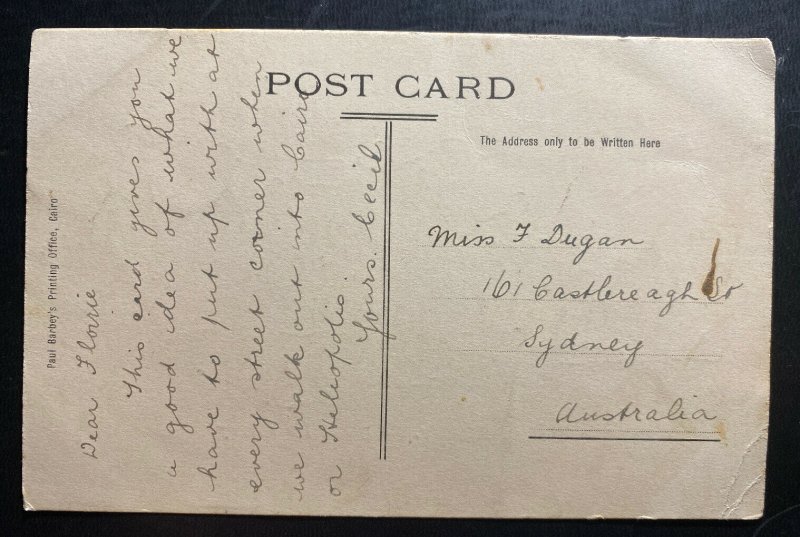 POST CARD
The Address only to be Written Here
Paul Barbey's Printing Office, Cairo
Dear Florie
This card gives you
a good idea of what we
have to put up with at
every street corner when
we walk out into Cairo
or Heliopolis.
Yours. Cecil
Miss F Dugan
161 Castlereagh St
Sydney
Australia